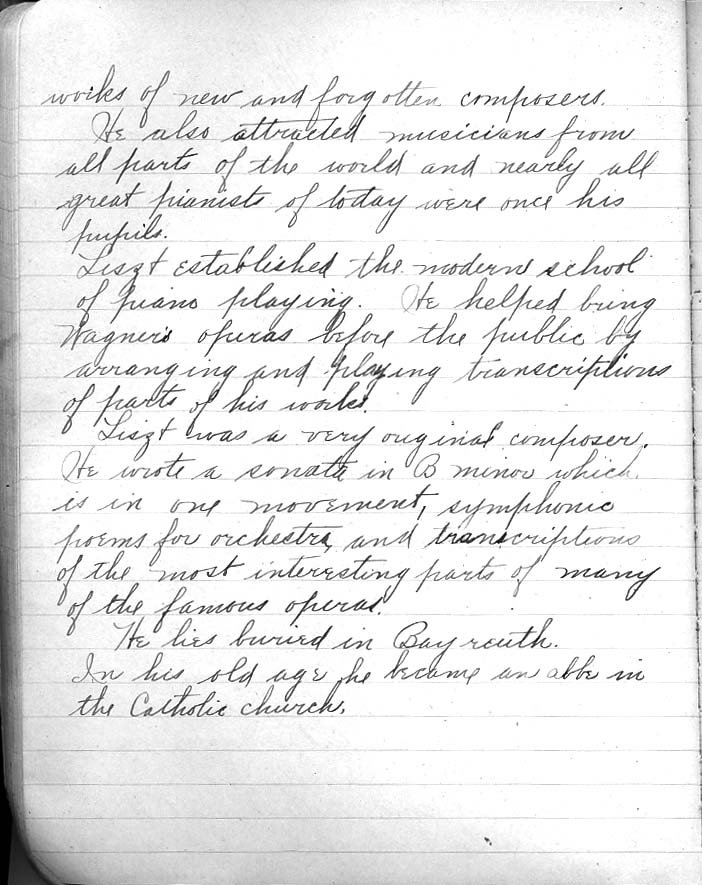 works of new and forgotten composers.
He also attracted musicians from
all parts of the world and nearly all
great pianists of today were once his
pupils.
Liszt established the modern school
of piano playing. He helped bring
Wagner's operas before the public by
arranging and playing transcriptions
of parts of his works.
Liszt was a very original composer.
He wrote a sonata in B minor which
is in one movement, symphonic
poems for orchestra, and transcriptions
of the most interesting parts of many
of the famous operas.
He lies buried in Bayreuth.
In his old age he became an abbe in
the Catholic church.